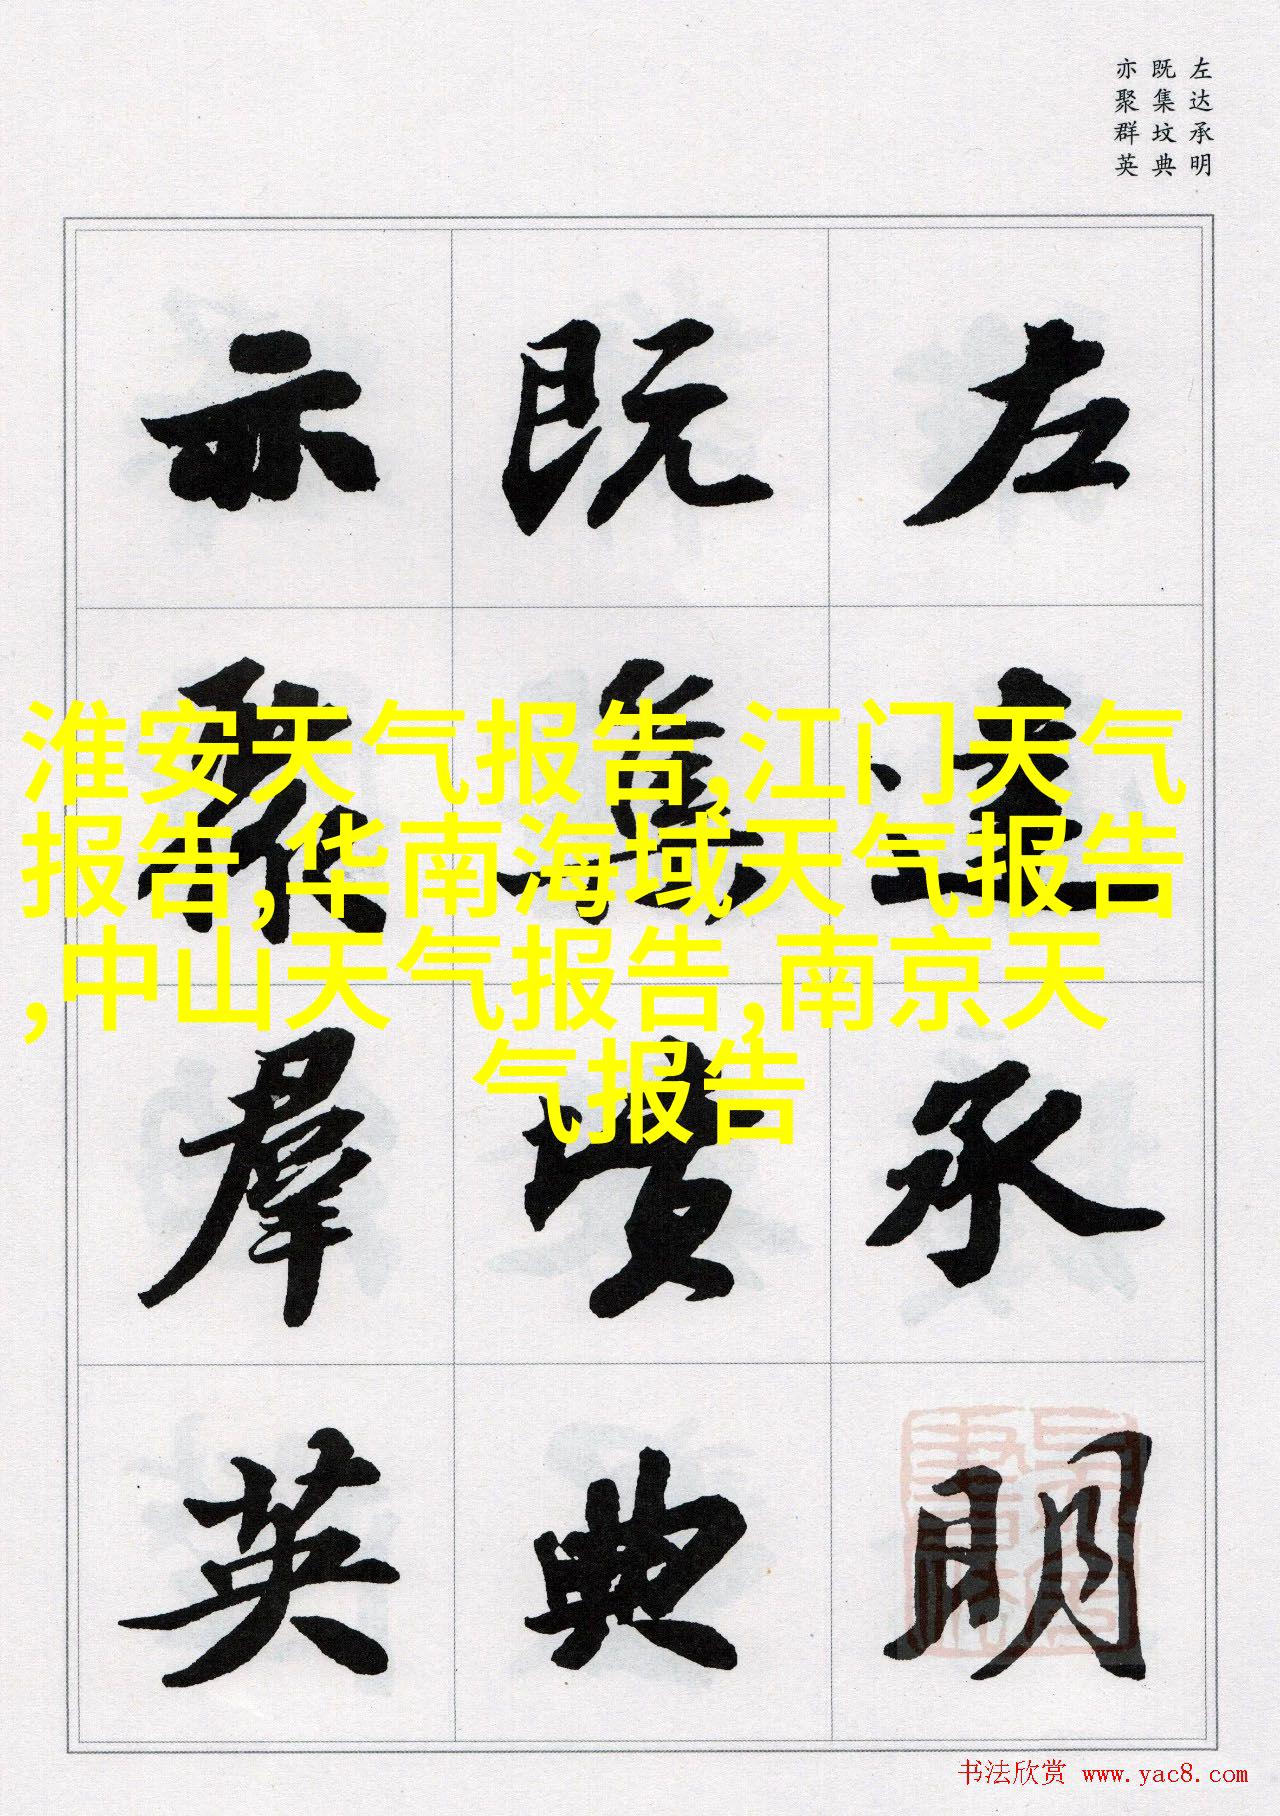 左达承明
既集坟典
亦聚群英
左達承明
既集墳典
亦聚羣英
淮安天气报告,江门天气
报告,华南海域天气报告
,中山天气报告,南京天
气报告
书法欣赏 www.yac8.com